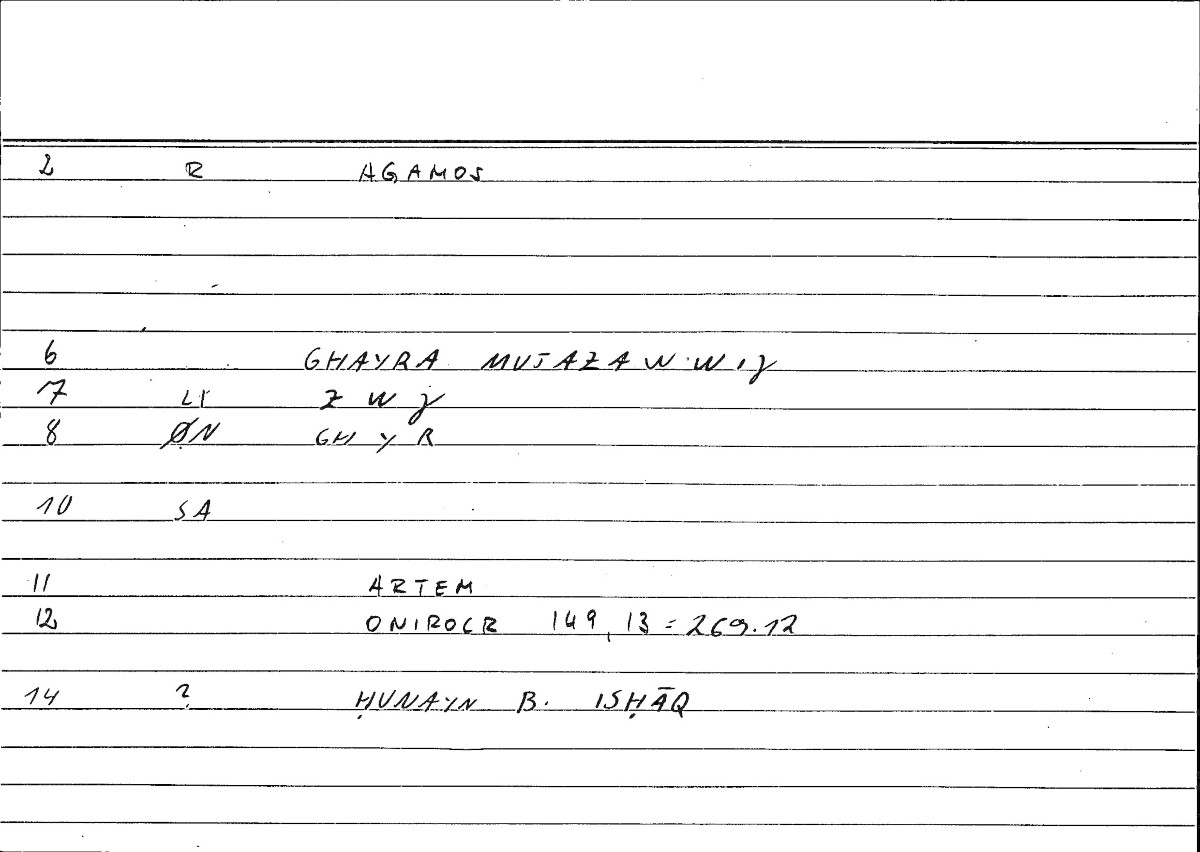 2 R AGAMOS
6 GHAYRA MUTAZAWWIJ
7 LT Z W J
8 ØN GH Y R
10 SA
11 ARTEM
12 ONIROCR 149,13 = 269.12
14 ? ḤUNAYN B. ISḤĀQ